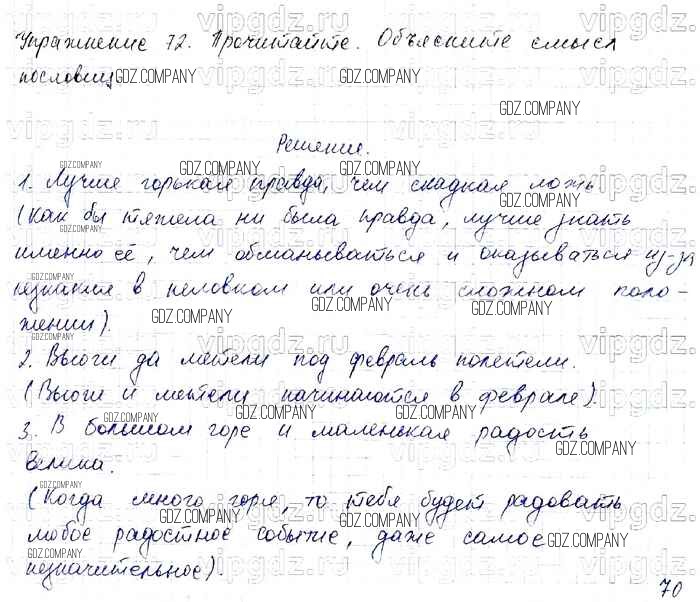 Упражнение 72. Прочитайте. Объясните смысл
пословиц
Решение.
1. Лучше горькая правда, чем сладкая ложь
(Как бы тяжела ни была правда, лучше знать
именно её, чем обманываться и оказываться из-за
незнания в неловком или очень сложном поло-
жении).
2. Вьюги да метели под февраль полетели.
(Вьюги и метели начинаются в феврале).
3. В большом горе и маленькая радость
велика.
(Когда много горя, то тебя будет радовать
любое радостное событие, даже самое
незначительное).
70